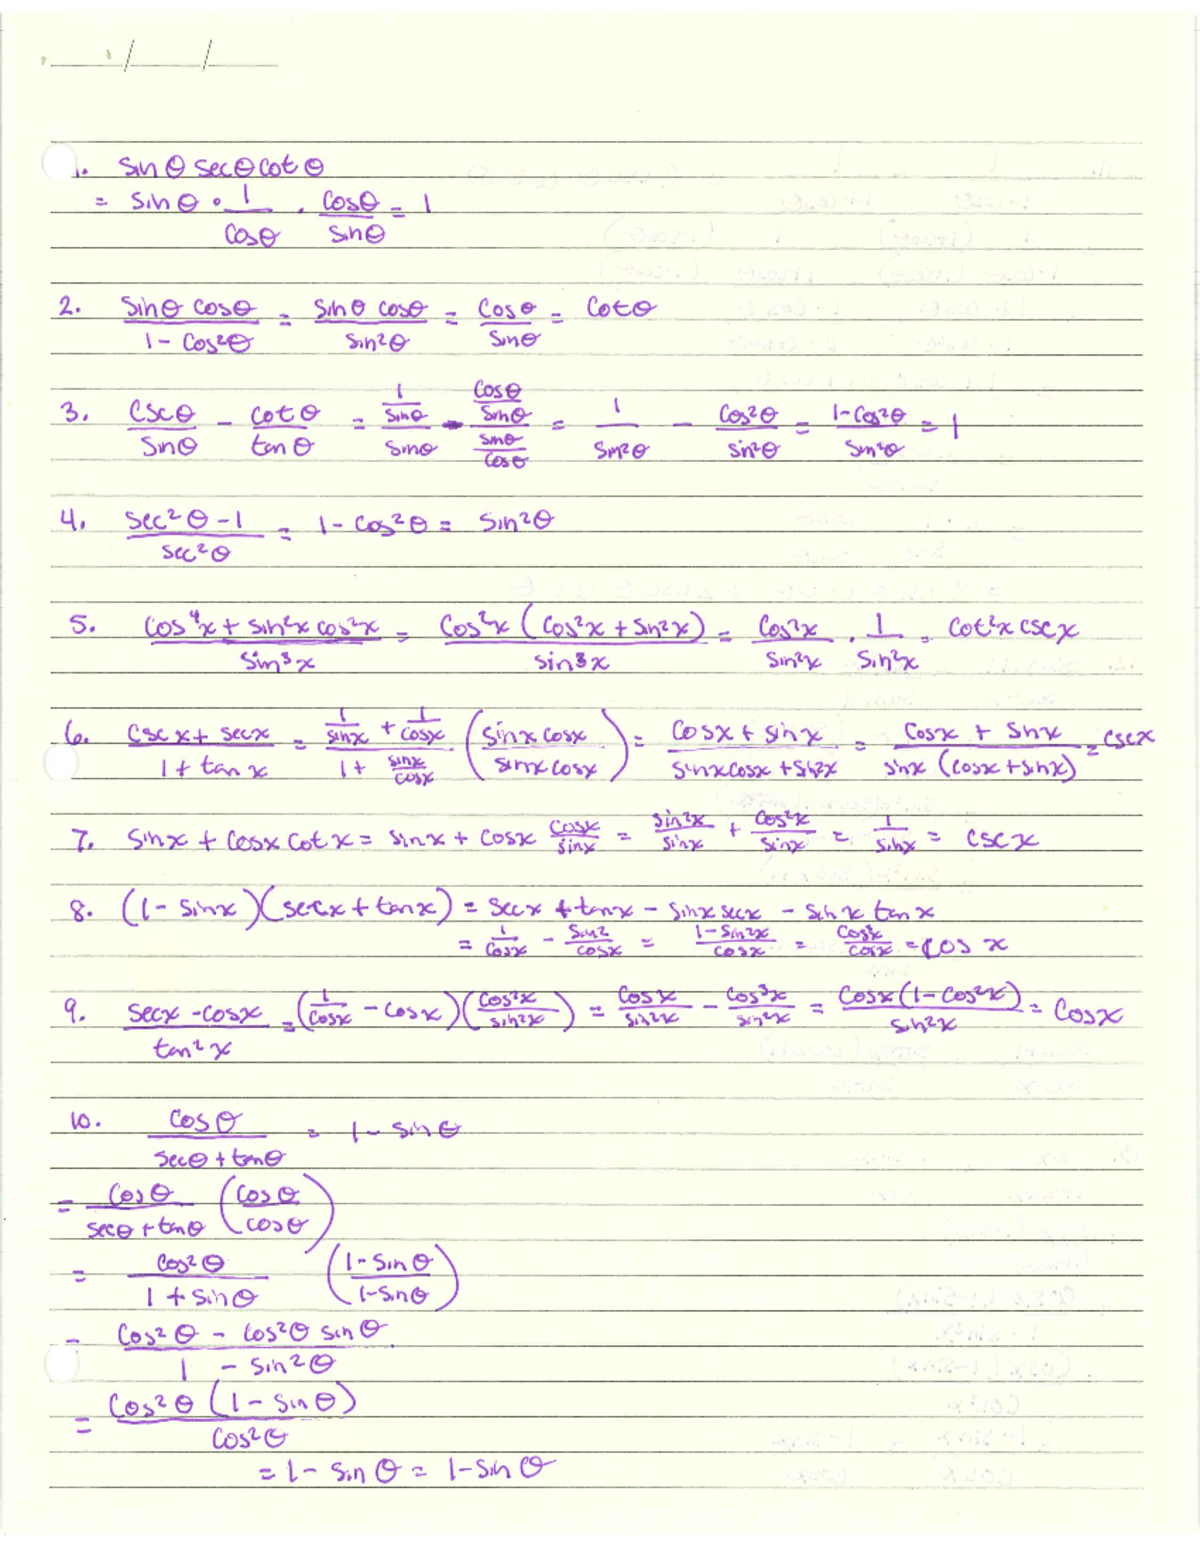 1. sin θ sec θ cot θ
= sin θ · 1/cosθ · cosθ/sinθ = 1
2. sinθ cosθ/1 - cos²θ = sinθ cosθ/sin²θ = cosθ/sinθ = cotθ
3. cscθ/sinθ - cotθ/tanθ = (1/sinθ)/sinθ - (cosθ/sinθ)/(sinθ/cosθ) = 1/sin²θ - cos²θ/sin²θ = 1-cos²θ/sin²θ = 1
4. sec²θ - 1/sec²θ = 1 - cos²θ = sin²θ
5. cos⁴x + sin²x cos²x/sin³x = cos²x (cos²x + sin²x)/sin³x = cos²x/sin²x · 1/sin²x = cot²x csc x
6. csc x + sec x/1 + tan x = (1/sinx + 1/cosx)/(1 + sinx/cosx) (sinx cosx/sinx cosx) = cosx + sinx/sinxcosx + sin²x = cosx + sinx/sinx (cosx + sinx) = cscx
7. sinx + cosx cot x = sinx + cosx cosx/sinx = sin²x/sinx + cos²x/sinx = 1/sinx = csc x
8. (1 - sinx)(secx + tanx) = secx + tanx - sinx secx - sinx tanx
= 1/cosx - sin2/cosx = 1 - sin²x/cosx = cos²x/cosx = cos x
9. secx - cosx/tan²x = (1/cosx - cosx)(cos²x/sin²x) = cosx/sin²x - cos³x/sin²x = cosx(1-cos²x)/sin²x = cosx
10. cosθ/secθ + tanθ = 1 - sinθ
= cosθ/secθ + tanθ (cosθ/cosθ)
= cos²θ/1 + sinθ (1 - sinθ/1 - sinθ)
= cos²θ - cos²θ sinθ/1 - sin²θ
= cos²θ (1 - sinθ)/cos²θ
= 1 - sinθ = 1 - sinθ